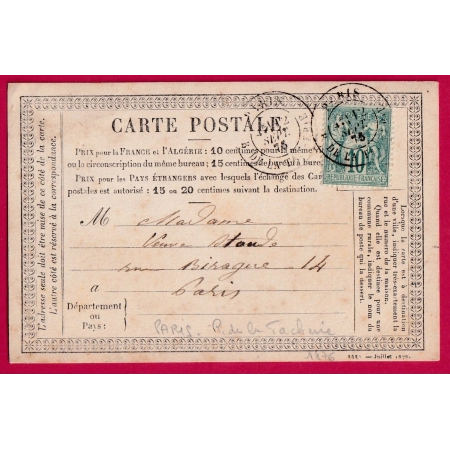 CARTE POSTALE
PRIX pour la FRANCE et l'ALGÉRIE: 10 centimes pour la même
ou la circonscription du même bureau; 15 centimes de bureau à bureau.
PRIX pour les PAYS ÉTRANGERS avec lesquels l'échange des Car
postales est autorisé : 15 ou 20 centimes suivant la destination.
M Madame
Veuve
rue Birague 14
à Paris
Département
ou
Pays:
L'adresse seule doit être mise de ce côté de la carte.
L'autre côté est réservé à la correspondance.
Lorsque la carte est à destination
d'une ville, indiquer très-exactement la
rue et le numéro de la maison.
Quand elle est destinée pour une
commune rurale, indiquer le nom du
bureau de poste qui la dessert.
10
RÉPUBLIQUE FRANÇAISE
PARIS
PARIS. R. de la
1876
Juillet 1875.